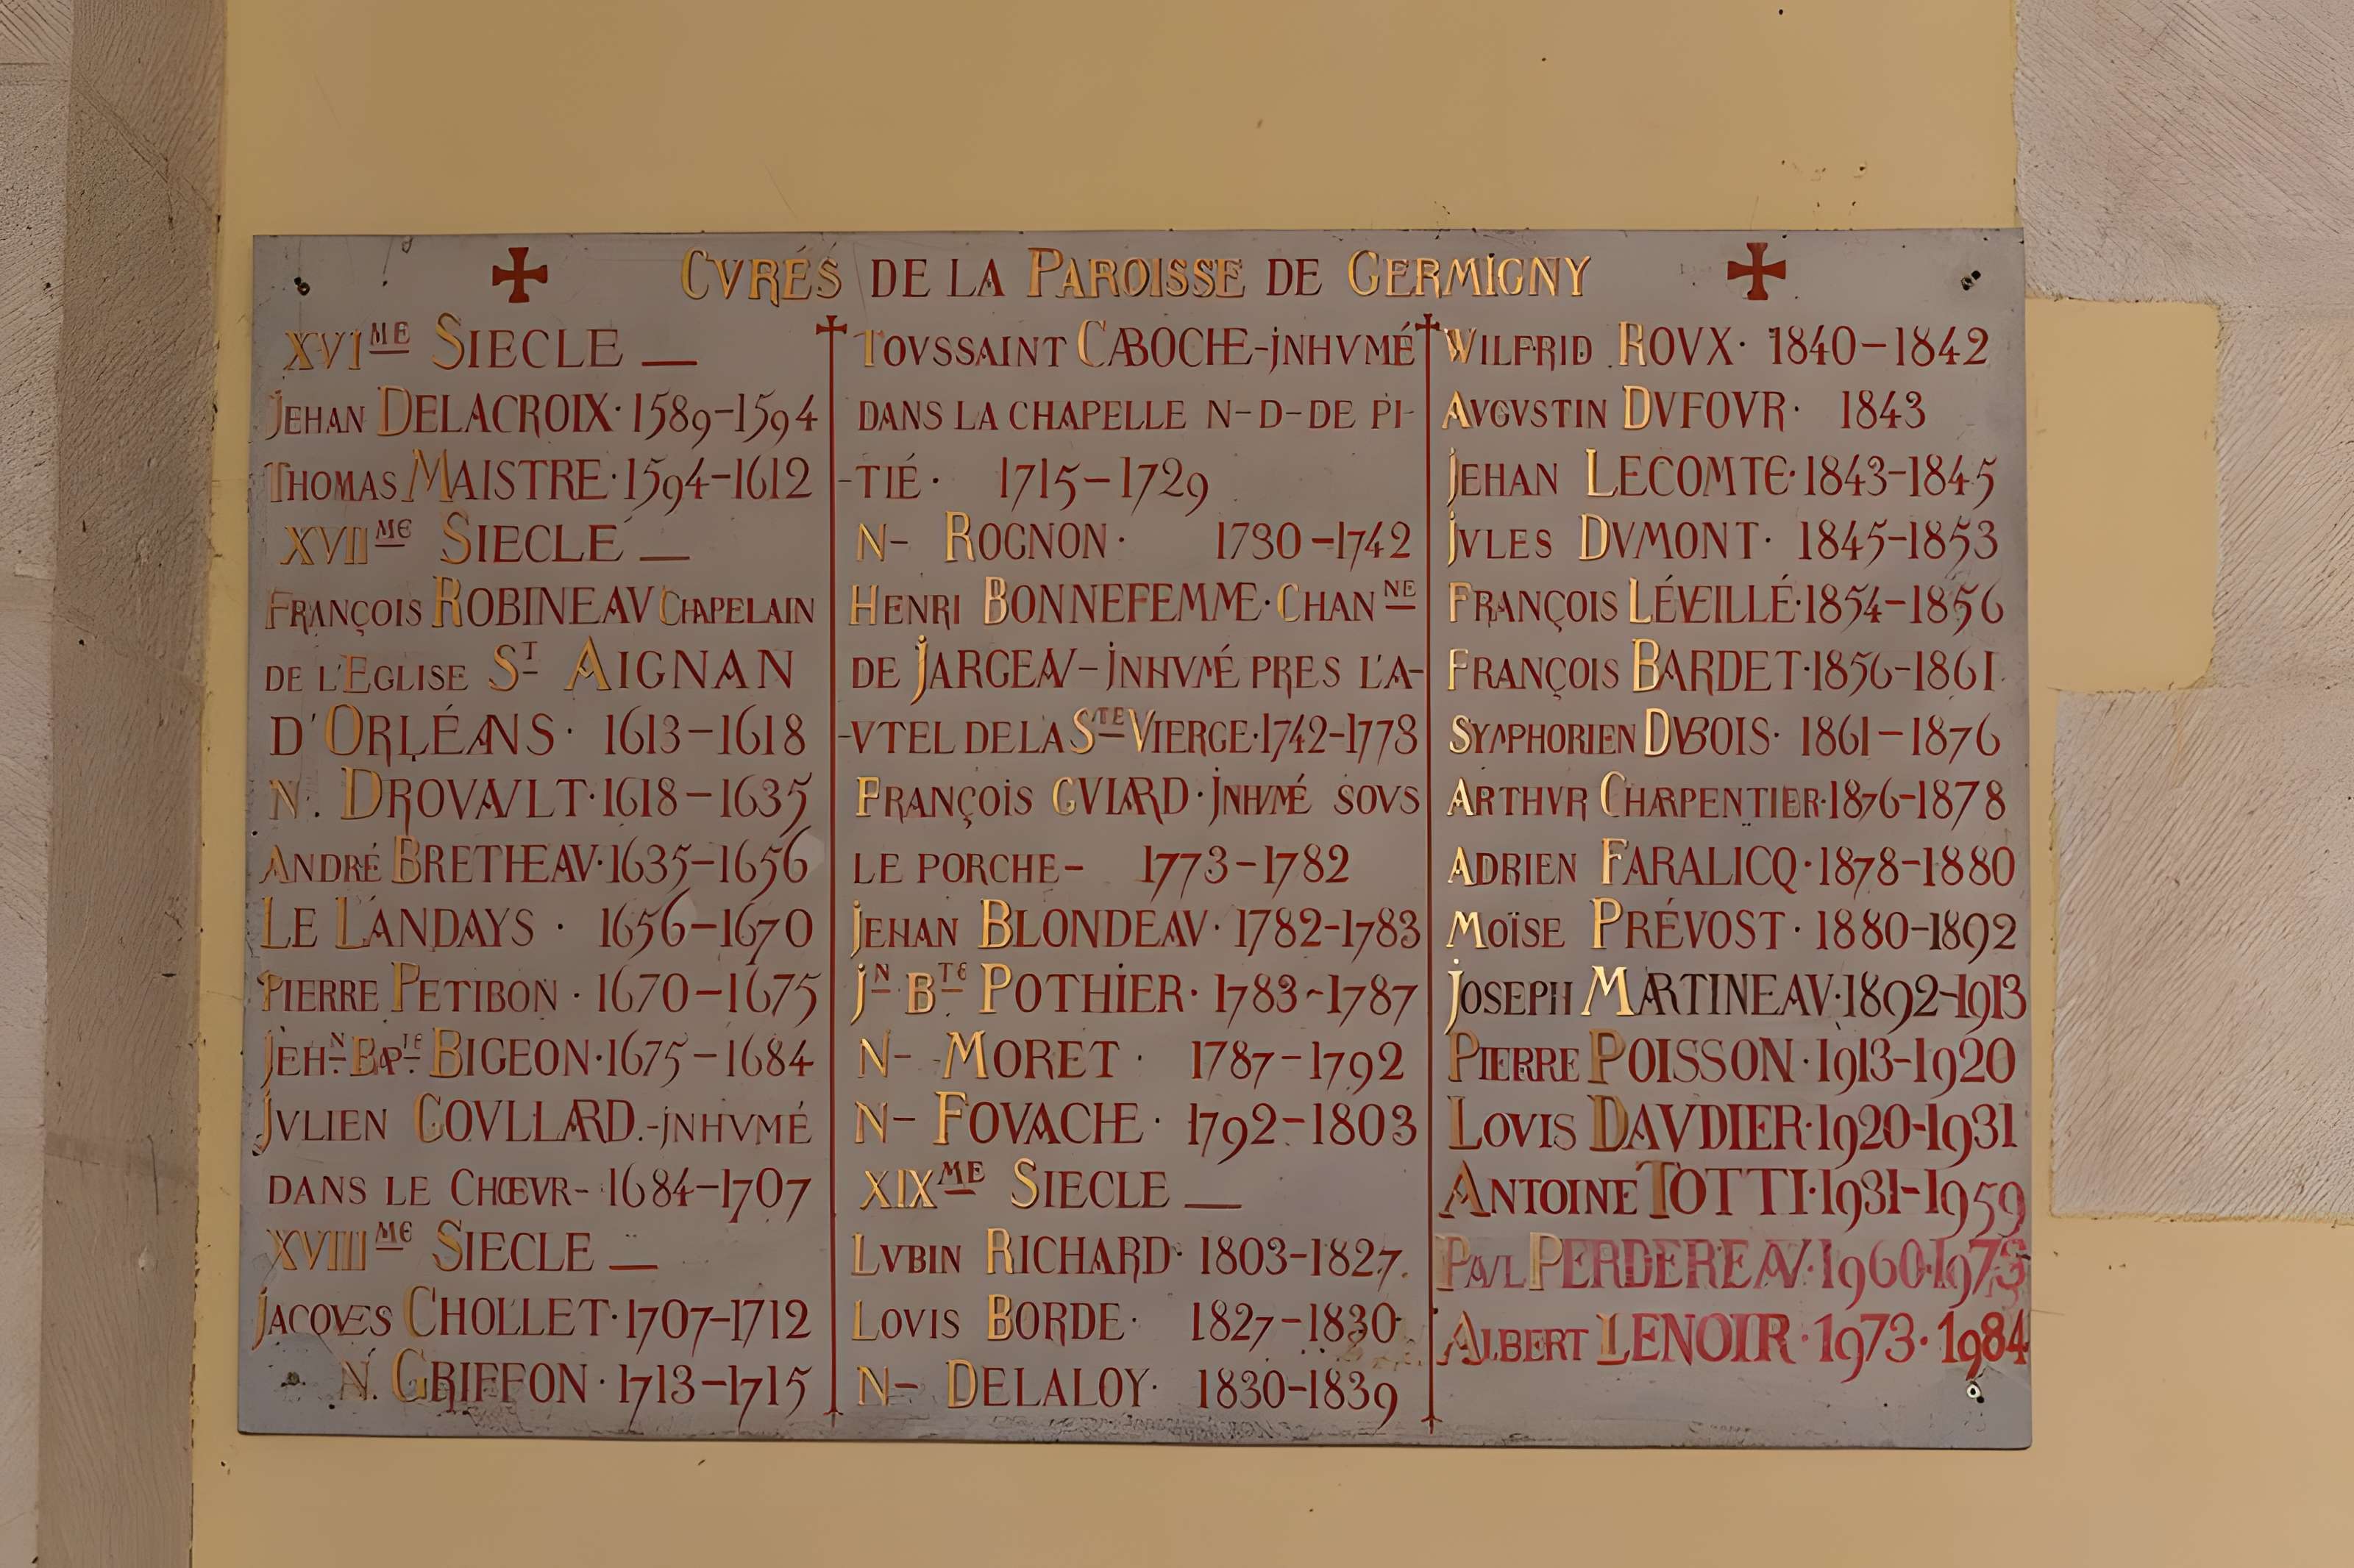 CVRÉS DE LA PAROISSE DE GERMIGNY
XVIME SIECLE —
JEHAN DELACROIX · 1589-1594
THOMAS MAISTRE · 1594-1612
XVIIME SIECLE —
FRANÇOIS ROBINEAV CHAPELAIN
DE L'EGLISE ST AIGNAN
D'ORLÉANS · 1613-1618
N. DROVAVLT · 1618-1635
ANDRÉ BRETHEAV · 1635-1656
LE LANDAYS · 1656-1670
PIERRE PETIBON · 1670-1675
JEHN BAPTE BIGEON · 1675-1684
JVLIEN COVLLARD.-JNHVMÉ
DANS LE CHŒVR- 1684-1707
XVIIIME SIECLE —
JACQVES CHOLLET · 1707-1712
N. GRIFFON · 1713-1715
TOVSSAINT CABOCHE-JNHVMÉ
DANS LA CHAPELLE N-D-DE PI-
-TIÉ · 1715-1729
N- ROGNON · 1730-1742
HENRI BONNEFEMME · CHANNE
DE JARGEAV-JNHVMÉ PRES L'A-
-VTEL DE LA STE VIERGE · 1742-1773
FRANÇOIS GVIARD · JNHVMÉ SOVS
LE PORCHE- 1773-1782
JEHAN BLONDEAV · 1782-1783
JN BTE POTHIER · 1783-1787
N- MORET · 1787-1792
N- FOVACHE · 1792-1803
XIXME SIECLE —
LVBIN RICHARD · 1803-1827.
LOVIS BORDE · 1827-1830
N- DELALOY · 1830-1839
WILFRID ROVX · 1840-1842
AVGVSTIN DVFOVR · 1843
JEHAN LECOMTE · 1843-1845
JVLES DVMONT · 1845-1853
FRANÇOIS LÉVEILLÉ · 1854-1856
FRANÇOIS BARDET · 1856-1861
SYMPHORIEN DVBOIS · 1861-1876
ARTHVR CHARPENTIER · 1876-1878
ADRIEN FARALICQ · 1878-1880
MOÏSE PRÉVOST · 1880-1892
JOSEPH MARTINEAV · 1892-1913
PIERRE POISSON · 1913-1920
LOVIS DAVDIER · 1920-1931
ANTOINE TOTTI · 1931-1959
PAVL PERDEREAV · 1960·1973
ALBERT LENOIR · 1973 · 1984